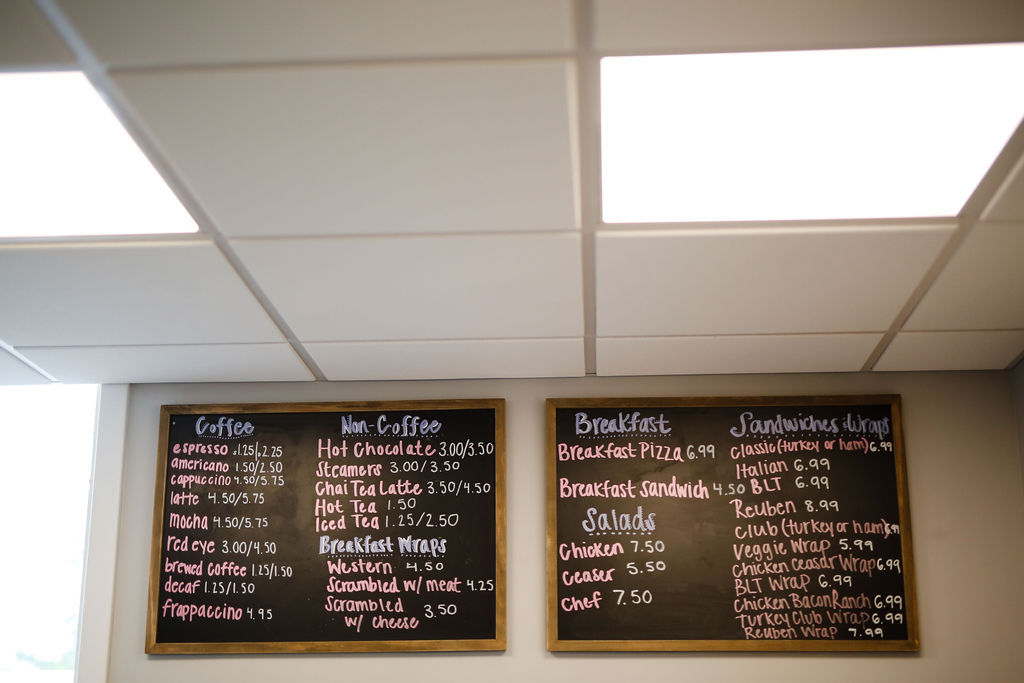 Coffee
espresso 1.25/2.25
americano 1.50/2.50
cappuccino 4.50/5.75
latte 4.50/5.75
mocha 4.50/5.75
red eye 3.00/4.50
brewed coffee 1.25/1.50
decaf 1.25/1.50
frappaccino 4.95
Non-Coffee
Hot Chocolate 3.00/3.50
Steamers 3.00/3.50
Chai Tea Latte 3.50/4.50
Hot Tea 1.50
Iced Tea 1.25/2.50
Breakfast Wraps
Western 4.50
Scrambled w/ meat 4.25
Scrambled
w/ cheese 3.50
Breakfast
Breakfast Pizza 6.99
Breakfast Sandwich 4.50
Salads
Chicken 7.50
Ceaser 5.50
Chef 7.50
Sandwiches & Wraps
Classic (turkey or ham) 6.99
Italian 6.99
BLT 6.99
Reuben 8.99
Club (turkey or ham)
Veggie Wrap 5.99
Chicken Ceasar Wrap 6.99
BLT Wrap 6.99
Chicken Bacon Ranch 6.99
Turkey Club Wrap 6.99
Reuben Wrap 7.99